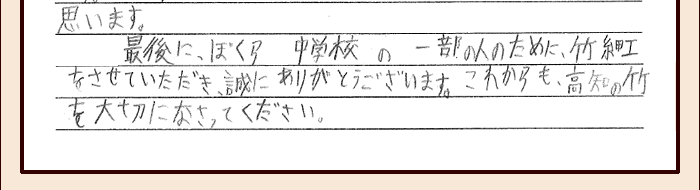 思います。
最後に、ぼくら 中学校 の 一部の人のために、竹細工
をさせていただき、誠にありがとうございます。これからも、高知の竹
を大切になさってください。